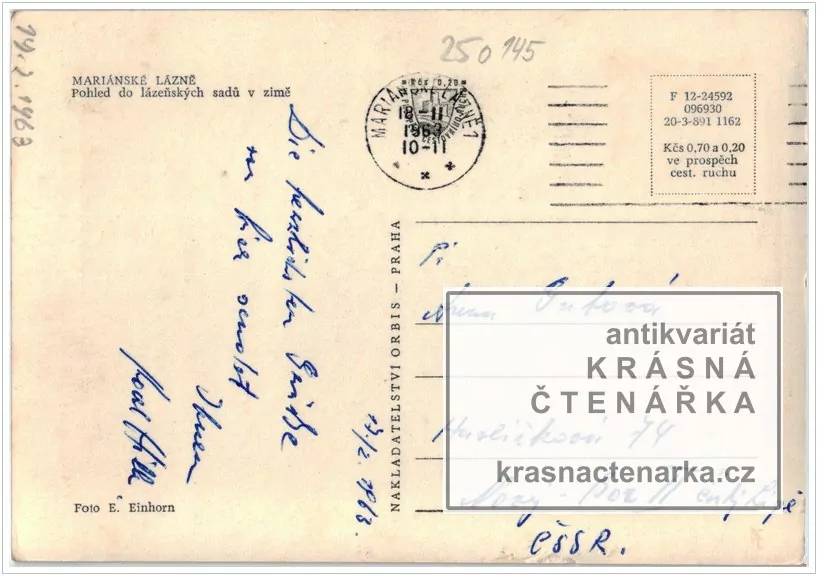 19.2.1963
250 145
MARIÁNSKÉ LÁZNĚ
Pohled do lázeňských sadů v zimě
Kčs 0,20
MARIÁNSKÉ LÁZNĚ 1
18-II
1963
10-11
F 12-24592
096930
20-3-891 1162
Kčs 0,70 a 0,20
ve prospěch
cest. ruchu
Die herzlichsten Grüße
von hier sendet
Ihnen
19/2. 1963.
NAKLADATELSTVÍ ORBIS — PRAHA
Havlíčková 74
Nový Bor
ČSSR.
antikvariát
KRÁSNÁ
ČTENÁŘKA
krasnactenarka.cz
Foto E. Einhorn